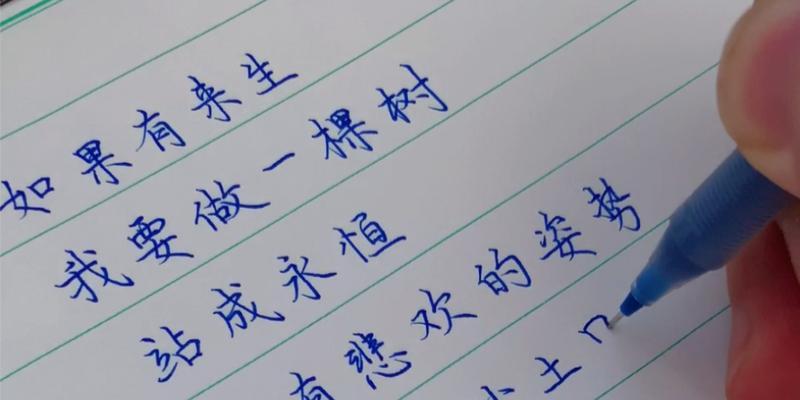 如果有来生
我要做一棵树
站成永恒
有悲欢的姿势
土